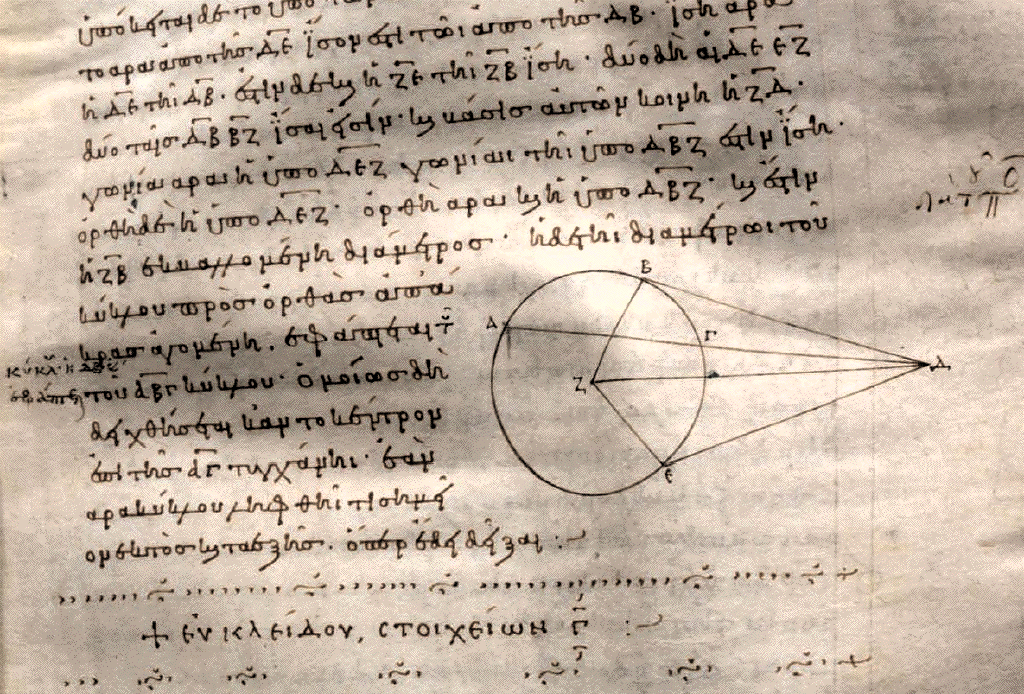 ὑπόκειται δὲ τὸ ὑπὸ τῶν
τὸ ἄρα ἀπὸ τῆς ΔΕ ἴσον ἐστὶ τῶι ἀπὸ τῆς ΔΒ· ἴση ἄρα
ἡ ΔΕ τῆι ΔΒ· ἐστὶν δὲ καὶ ἡ ΖΕ τῆι ΖΒ ἴση· δύο δὴ αἱ ΔΕ ΕΖ
δύο ταῖς ΔΒ ΒΖ ἴσαι εἰσίν· καὶ βάσις αὐτῶν κοινὴ ἡ ΖΔ·
γωνία ἄρα ἡ ὑπὸ ΔΕΖ γωνίαι τῆι ὑπὸ ΔΒΖ ἐστὶν ἴση·
ὀρθὴ δὲ ἡ ὑπὸ ΔΕΖ· ὀρθὴ ἄρα καὶ ἡ ὑπὸ ΔΒΖ· καὶ ἐστὶν
ἡ ΖΒ ἐκβαλλομένη διάμετρος· ἡ δὲ τῆι διαμέτρωι τοῦ
κύκλου πρὸς ὀρθὰς ἀπ ἄ
κρας ἀγομένη, ἐφάπτεται τ
τοῦ ΑΒΓ κύκλου· ὁμοίως δὴ
δειχθήσεται κἂν τὸ κέντρον
ἐπὶ τῆς ΑΓ τυγχάνηι· ἐὰν
ἄρα κύκλου ληφθῆι τι σημεῖ
ον ἐκτὸς καὶ τὰ ἑξῆς· ὅπερ ἔδει δεῖξαι :~
+ ΕΥΚΛΕΙΔΟΥ, CΤΟΙΧΕΙΩΝ Γ :~
Β
Α
Γ
Ζ
Δ
Ε